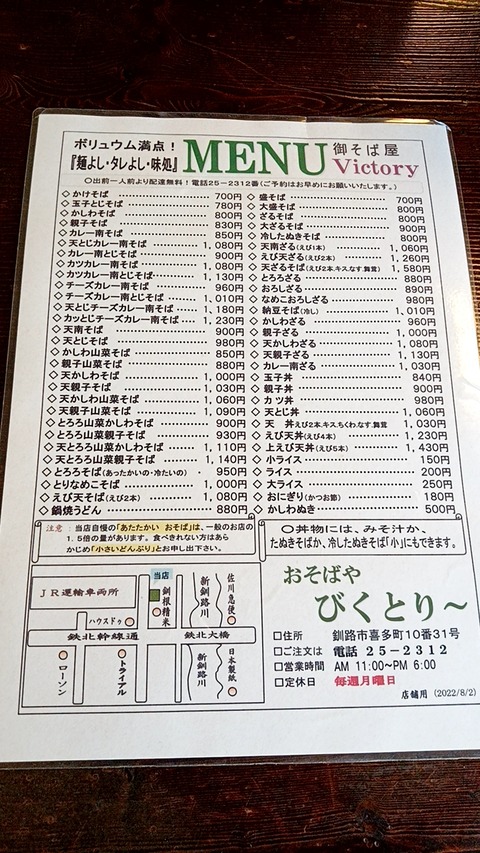 ボリュウム満点！
『麺よし・タレよし・味処』
MENU
御そば屋
Victory
〇出前一人前より配達無料！電話25－2312番（ご予約はお早めにお願いいたします。）
◇かけそば 700円
◇玉子とじそば 780円
◇かしわそば 800円
◇親子そば 830円
◇カレー南そば 850円
◇天とじカレー南そば 1,080円
◇カレー南とじそば 900円
◇カツカレー南そば 1,080円
◇カツカレー南とじそば 1,130円
◇チーズカレー南そば 960円
◇チーズカレー南とじそば 1,010円
◇天とじチーズカレー南そば 1,180円
◇カッとじチーズカレー南そば 1,230円
◇天南そば 900円
◇天とじそば 980円
◇かしわ山菜そば 850円
◇親子山菜そば 880円
◇天かしわそば 1,000円
◇天親子そば 1,030円
◇天かしわ山菜そば 1,060円
◇天親子山菜そば 1,090円
◇とろろ山菜かしわそば 900円
◇とろろ山菜親子そば 930円
◇天とろろ山菜かしわそば 1,110円
◇天とろろ山菜親子そば 1,140円
◇とろろそば（あったかいの・冷たいの） 950円
◇とりなめこそば 1,000円
◇えび天そば（えび2本） 1,080円
◇鍋焼うどん 880円
◇盛そば 700円
◇大盛そば 800円
◇ざるそば 800円
◇大ざるそば 900円
◇冷したぬきそば 800円
◇天南ざる（えび1本） 1,060円
◇えび天ざる（えび2本） 1,260円
◇天ざるそば（えび2本,キス,なす,舞茸） 1,580円
◇とろろざる 880円
◇おろしざる 890円
◇なめこおろしざる 980円
◇納豆そば（冷し） 1,010円
◇かしわざる 960円
◇親子ざる 1,000円
◇天かしわざる 1,080円
◇天親子ざる 1,130円
◇カレー南ざる 1,030円
◇玉子丼 840円
◇親子丼 900円
◇カツ丼 980円
◇天とじ丼 1,060円
◇天　丼 えび2本,キス,ちくわ,なす,舞茸 1,030円
◇えび天丼（えび4本） 1,230円
◇上えび天丼（えび5本） 1,430円
◇小ライス 150円
◇ライス 200円
◇大ライス 250円
◇おにぎり（かつお節） 180円
◇かしわぬき 500円
注意：当店自慢の「あたたかい おそば」は、一般のお店の
1.5倍の量があります。食べきれない方はあら
かじめ「小さいどんぶり」とお申し出下さい。
〇丼物には、みそ汁か、
たぬきそばか、冷したぬきそば「小」にもできます。
当店
JR運輸車両所
釧根精米
新釧路川
佐川急便
ハウスドゥ
鉄北幹線通
鉄北大橋
ローソン
トライアル
新釧路川
日本製紙
おそばや
びくとり～
□住所 釧路市喜多町10番31号
□ご注文は 電話 25－2312
□営業時間 AM 11:00～PM 6:00
□定休日 毎週月曜日
店舗用 (2022/8/2)